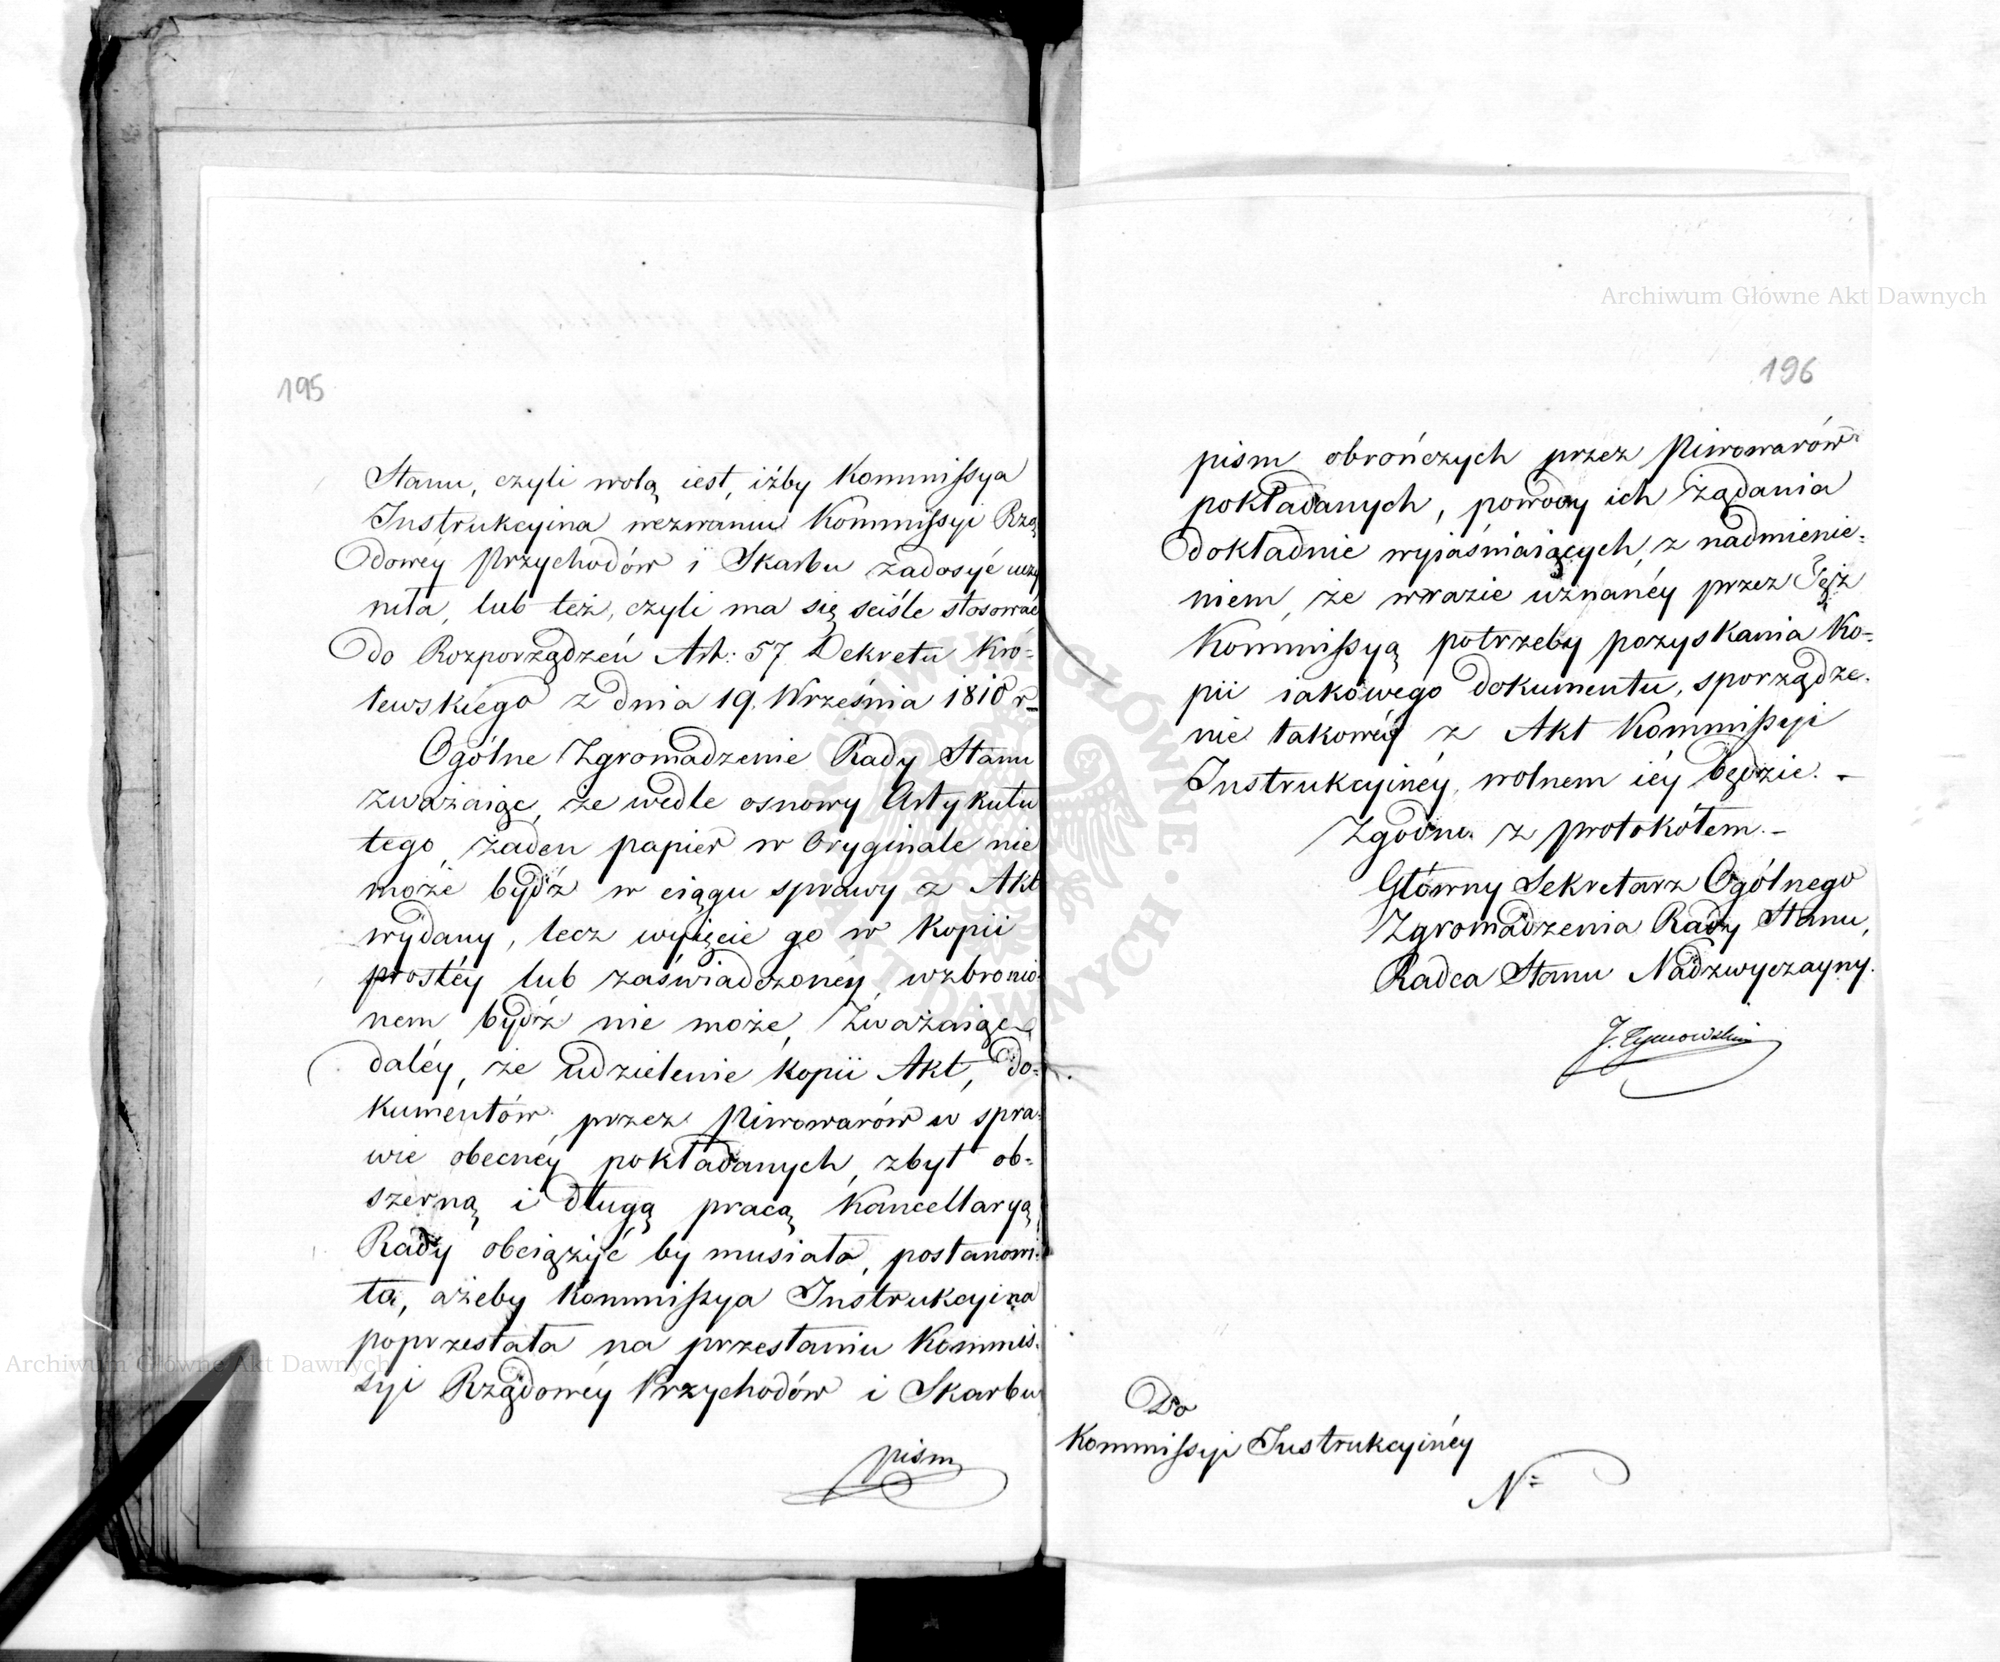 195
Stanu, czyli wolą iest, iżby Kommissya
Instrukcyina wezwaniu Kommissyi Rzą
dowey Przychodów i Skarbu zadosyć uczy
niła, lub też, czyli ma się ściśle stosować
do Rozporządzeń Art: 57 Dekretu Kró-
lewskiégo z dnia 19. Września 1810 r
Ogólne Zgromadzenie Rady Stanu
zważaiąc, że wedle osnowy Artykułu
tego, żaden papier w Oryginale nie
może bydź w ciągu sprawy z Akt
wydany, lecz wyięcie go w Kopii
prostéy lub zaświadczonéy, wzbronio-
nem bydź nie może, Zważaiąc
daléy, że udzielenie kopii Akt, do-
kumentów przez Piwowarów w spra-
wie obecnéy pokładanych, zbyt ob-
szerną i długą pracą Kancellaryą
Rady obciążyć by musiało, postanowi-
ła, ażeby Kommissya Instrukcyina
poprzestała na przesłaniu Kommis-
syi Rządowéy Przychodów i Skarbu
pism
196
pism obrończych przez Piwowarów
pokładanych, powody ich żądania
dokładnie wyiaśniaiących, z nadmienie-
niem, że wrazie uznanéy przez Tęż
Kommissyą potrzeby pozyskania Ko-
pii iakowego dokumentu, sporządze-
nie takowéy z Akt Kommissyi
Instrukcyinéy, wolnem iéy będzie. –
Zgodno z protokółem. –
Główny Sekretarz Ogólnego
Zgromadzenia Rady Stanu,
Radca Stanu Nadzwyczayny.
J. Tymowski
Do
Kommissyi Instrukcyinéy
N=
Archiwum Główne Akt Dawnych
Archiwum Główne Akt Dawnych
ARCHIWUM GŁÓWNE · AKT DAWNYCH ·